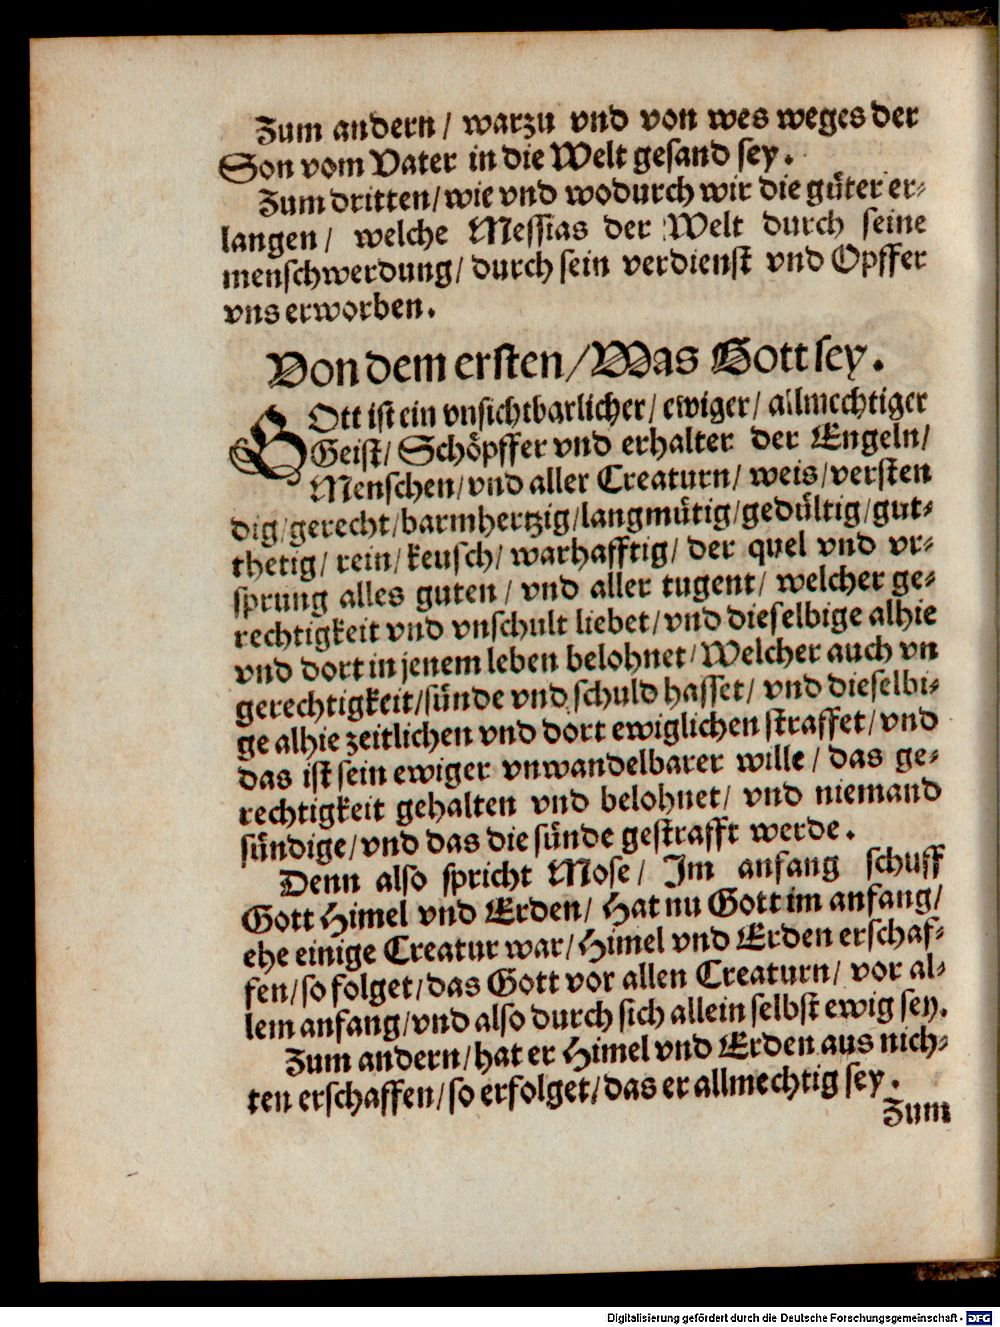 Zum andern / warzu vnd von wes weges der
Son vom Vater in die Welt gesand sey.
Zum dritten / wie vnd wodurch wir die güter er-
langen / welche Messias der Welt durch seine
menschwerdung / durch sein verdienst vnd Opffer
vns erworben.
Von dem ersten / Was Gott sey.
GOtt ist ein vnsichtbarlicher / ewiger / allmechtiger
Geist / Schöpffer vnd erhalter der Engeln /
Menschen / vnd aller Creaturn / weis / versten
dig / gerecht / barmhertzig / langmütig / gedültig / gut-
thetig / rein / keusch / warhafftig / der quel vnd vr-
sprung alles guten / vnd aller tugent / welcher ge-
rechtigkeit vnd vnschult liebet / vnd dieselbige alhie
vnd dort in jenem leben belohnet / Welcher auch vn
gerechtigkeit / sünde vnd schuld hasset / vnd dieselbi-
ge alhie zeitlichen vnd dort ewiglichen straffet / vnd
das ist sein ewiger vnwandelbarer wille / das ge-
rechtigkeit gehalten vnd belohnet / vnd niemand
sündige / vnd das die sünde gestrafft werde.
Denn also spricht Mose / Im anfang schuff
Gott Himel vnd Erden / Hat nu Gott im anfang /
ehe einige Creatur war / Himel vnd Erden erschaf-
fen / so folget / das Gott vor allen Creaturn / vor al-
lem anfang / vnd also durch sich allein selbst ewig sey.
Zum andern / hat er Himel vnd Erden aus nich-
ten erschaffen / so erfolget / das er allmechtig sey.
Zum
Digitalisierung gefördert durch die Deutsche Forschungsgemeinschaft - DFG